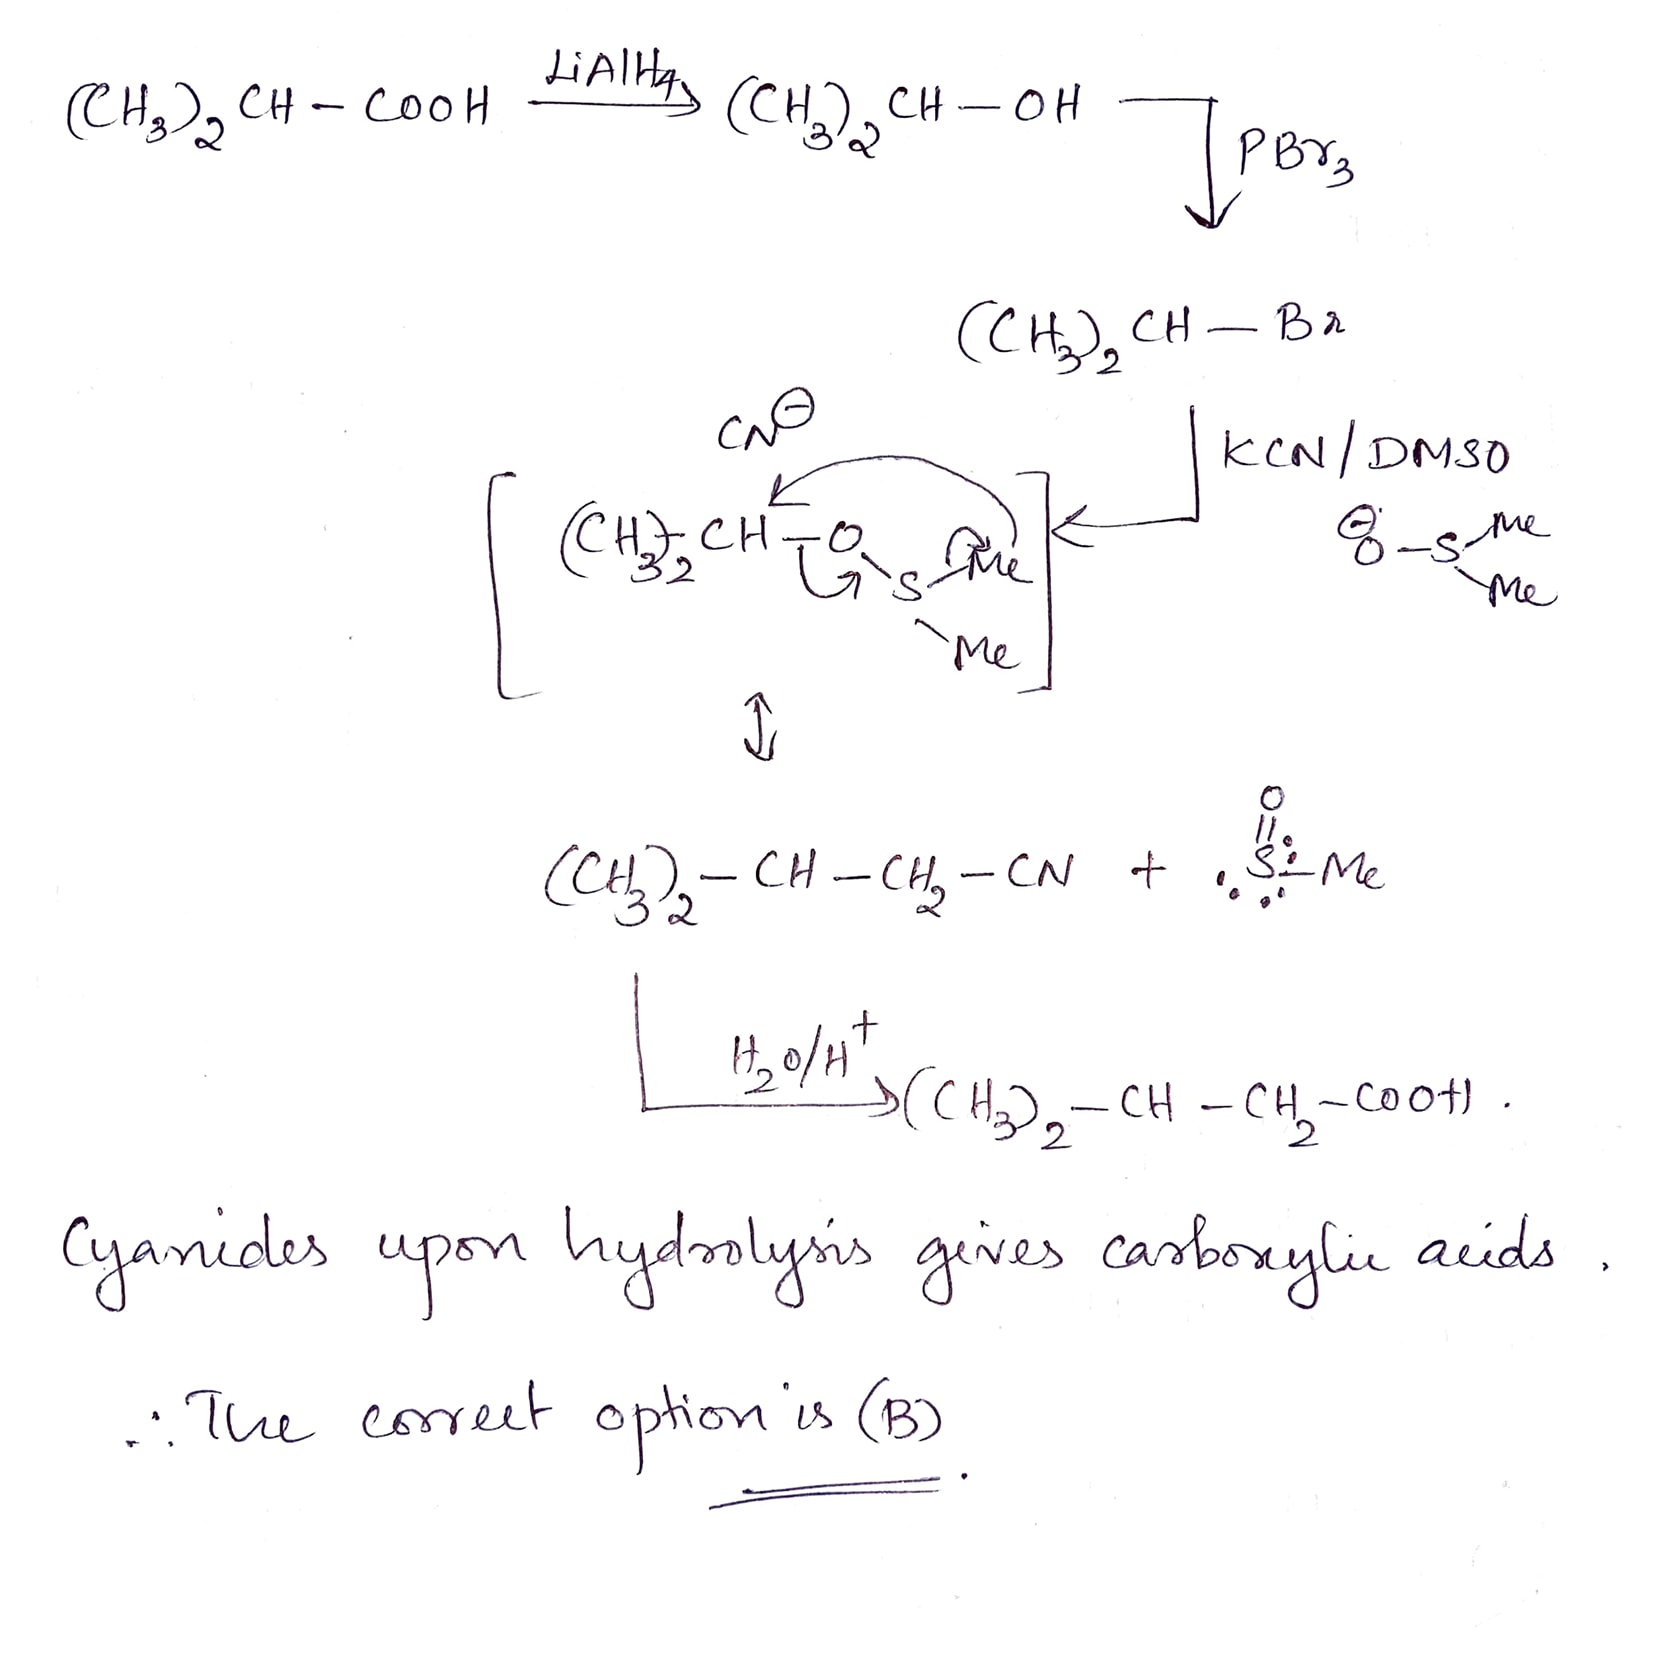 (CH3)2 CH - COOH LiAlH4 (CH3)2 CH - OH
PBr3
(CH3)2 CH - Br
CN⊖
KCN/DMSO
(CH3)2 CH - O - S - Me
Me
⊖O - S - Me
Me
(CH3)2 - CH - CH2 - CN + O
S - Me
H2O/H+
(CH3)2 - CH - CH2 - COOH .
Cyanides upon hydrolysis gives carboxylic acids .
∴ The correct option is (B) .